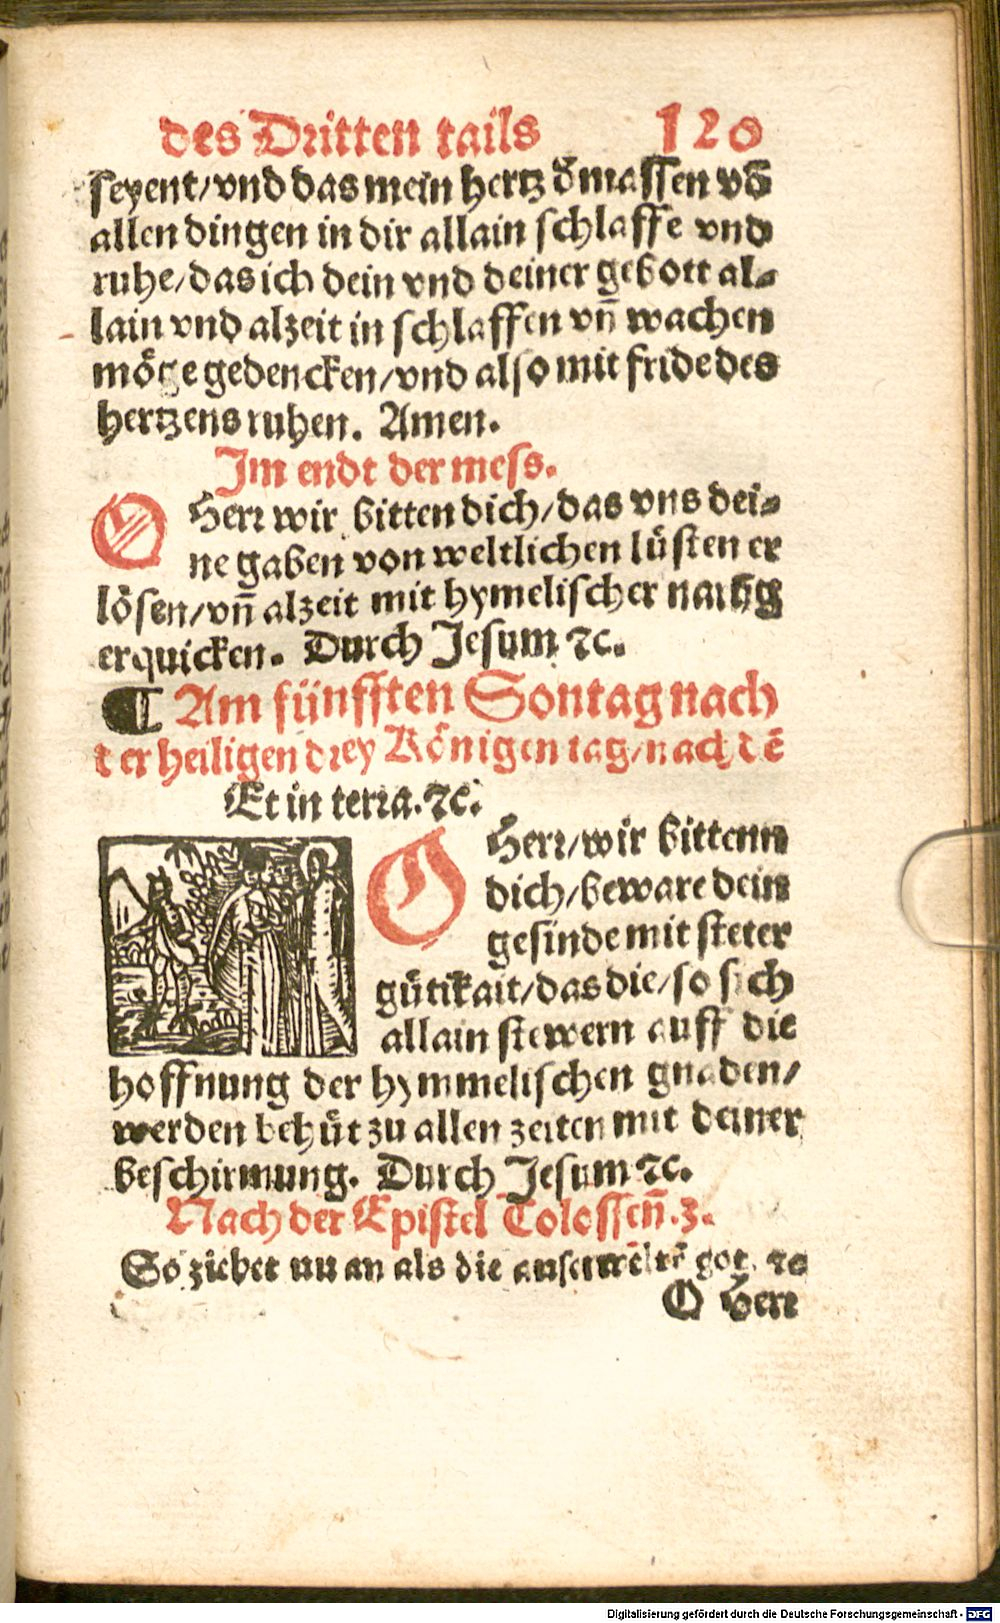 des Dritten tails 120
seyent/vnd das mein hertz d̄massen vō
allen dingen in dir allain schlaffe vnd
ruhe/das ich dein vnd deiner gebott al-
lain vnd alzeit in schlaffen vn̄ wachen
möge gedencken/vnd also mit fride des
hertzens ruhen. Amen.
Im endt der mess.
O Herr wir bitten dich/das vns dei-
ne gaben von weltlichen lüsten er
lösen/vn̄ alzeit mit hymelischer
erquicken. Durch Jesum ⁊c.
¶ Am fünfften Sontag nach
der heiligen drey Königen tag/nach dē
Et in terra.⁊c.
O Herr/wir bittenn
dich/beware dein
gesinde mit steter
gütikait/das die/so sich
allain stewern auff die
hoffnung der hymmelischen gnaden/
werden behüt zu allen zeiten mit deiner
beschirmung. Durch Jesum ⁊c.
Nach der Epistel Colossen̄.3.
So ziehet nu an als die auserweltē got. ⁊c
O Herr
Digitalisierung gefördert durch die Deutsche Forschungsgemeinschaft - DFG